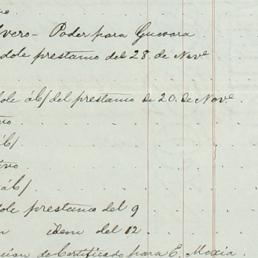 vero - Poder para Guevara
dole prestamo del 28. de Nov<sup>e</sup>
dole ab/ del prestamo de 20. de Nov<sup>e</sup>.
vo
b/
tivo
ab/
dole prestamo del 9
n idem del 12
sion de Certificado para E. Mexia.